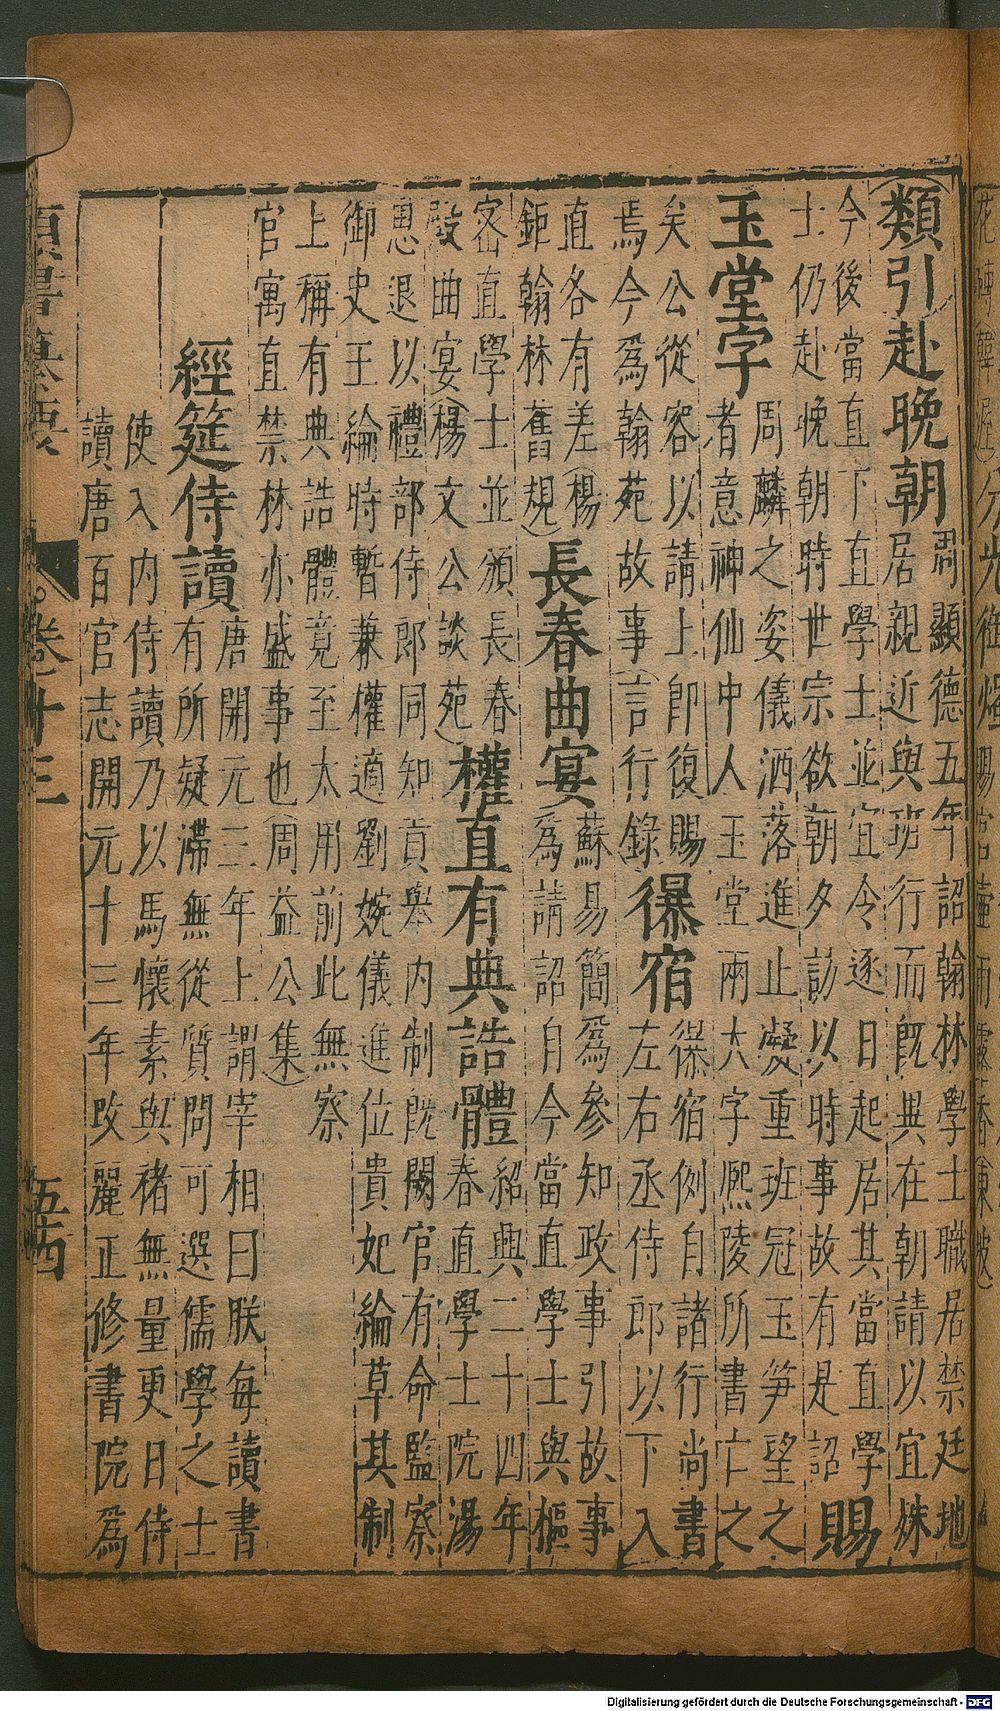 類引赴晚朝
周顯德五年詔翰林學士職居禁廷地
居親近與班行而旣異在朝請以宜殊
今後當直下直學士並宜令逐日起居其當直學
士仍赴晚朝時世宗欲朝夕訪以時事故有是詔
賜玉堂字
周麟之姿儀洒落進止凝重班冠玉笋望之
者意神仙中人玉堂兩大字熈陵所書亡之
矣公從容以請上卽復賜
焉今為翰苑故事(言行錄)
儤宿
儤宿例自諸行尚書
左右丞侍郎以下入
直各有差(楊
鉅翰林舊規)
長春曲宴
蘇易簡為參知政事引故事
為請詔自今當直學士與樞
密直學士並頒長春
殿曲宴(楊文公談苑)
權直有典誥體
紹興二十四年
春直學士院湯
思退以禮部侍郎同知貢舉內制旣闕官有命監察
御史王綸時暫兼權適劉婉儀進位貴妃綸草其制
上稱有典誥體竟至太用前此無察
官寓直禁林亦盛事也(周益公集)
經筵侍讀
唐開元三年上謂宰相曰朕每讀書
有所疑滯無從質問可選儒學之士
使入內侍讀乃以馬懷素與褚無量更日侍
讀唐百官志開元十三年改麗正修書院為
卷之十三
五四
Digitalisierung gefördert durch die Deutsche Forschungsgemeinschaft - DFG